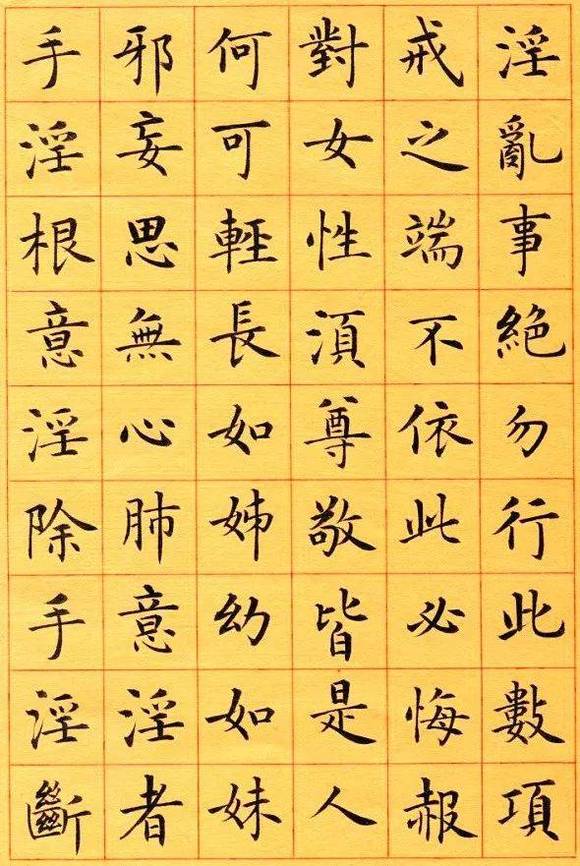 淫亂事絕勿行此數項
戒之端不依此必悔赧
對女性湏尊敬皆是人
何可輕長如姊幼如妹
邪妄思無心肺意淫者
手淫根意淫除手淫斷